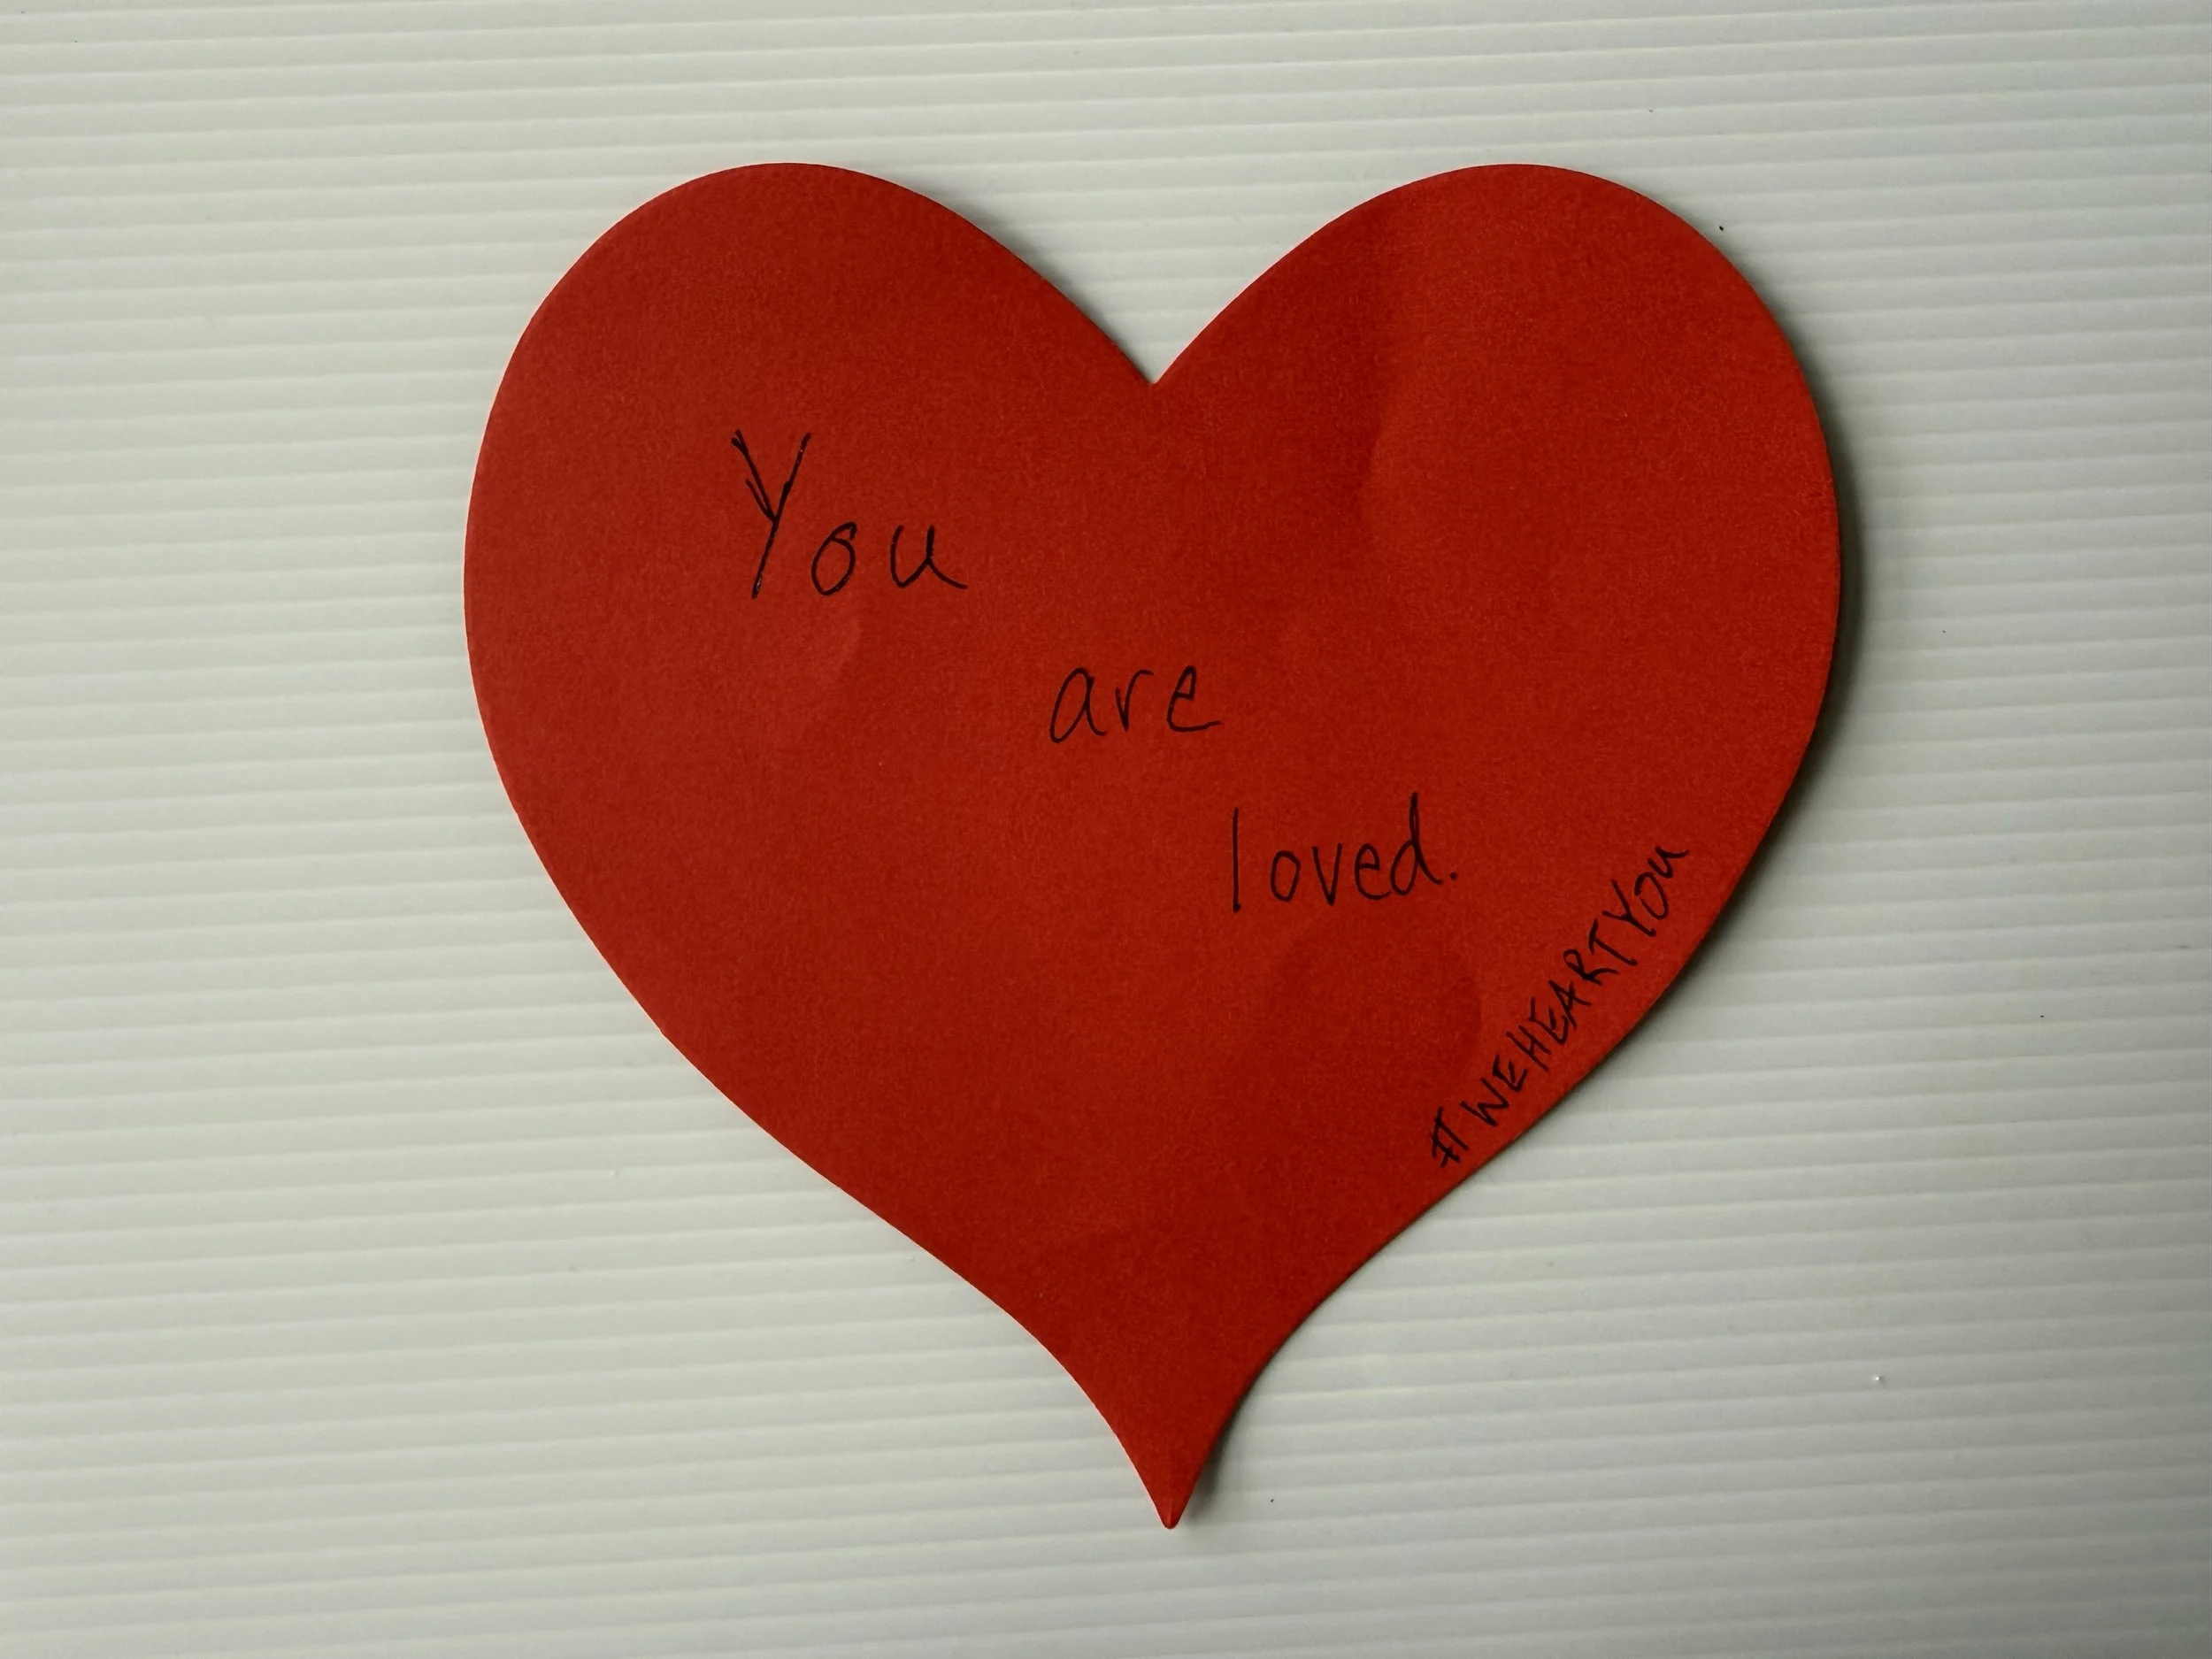 You
are
loved.
#WEHEARTYOU